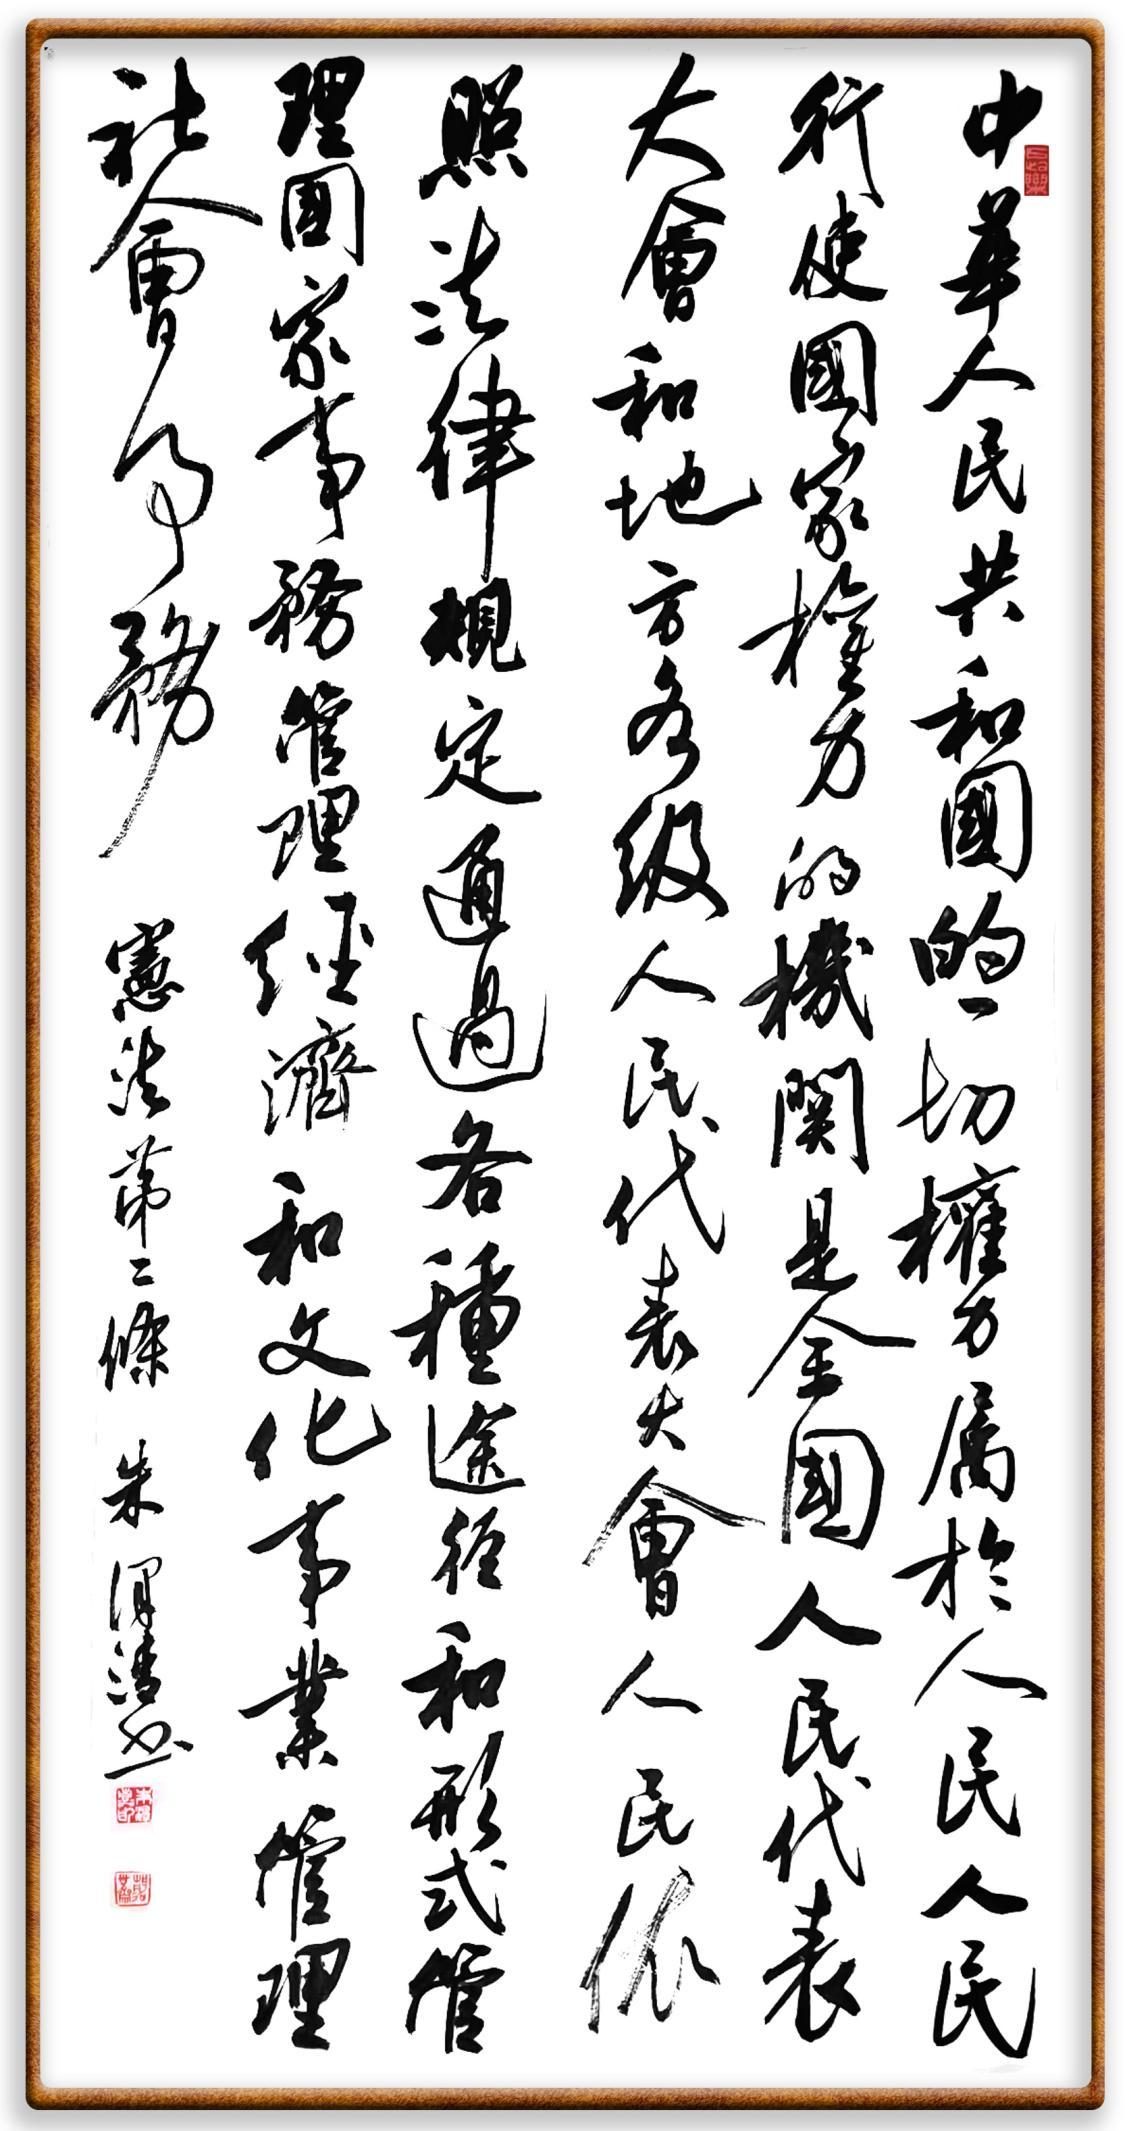 中華人民共和國的一切權力属於人民人民
行使國家權力的機関是全國人民代表
大會和地方各級人民代表大會人民依
照法律規定通過各種途径和形式管
理國家事務管理經濟和文化事業管理
社會事務 憲法第二條 朱清书